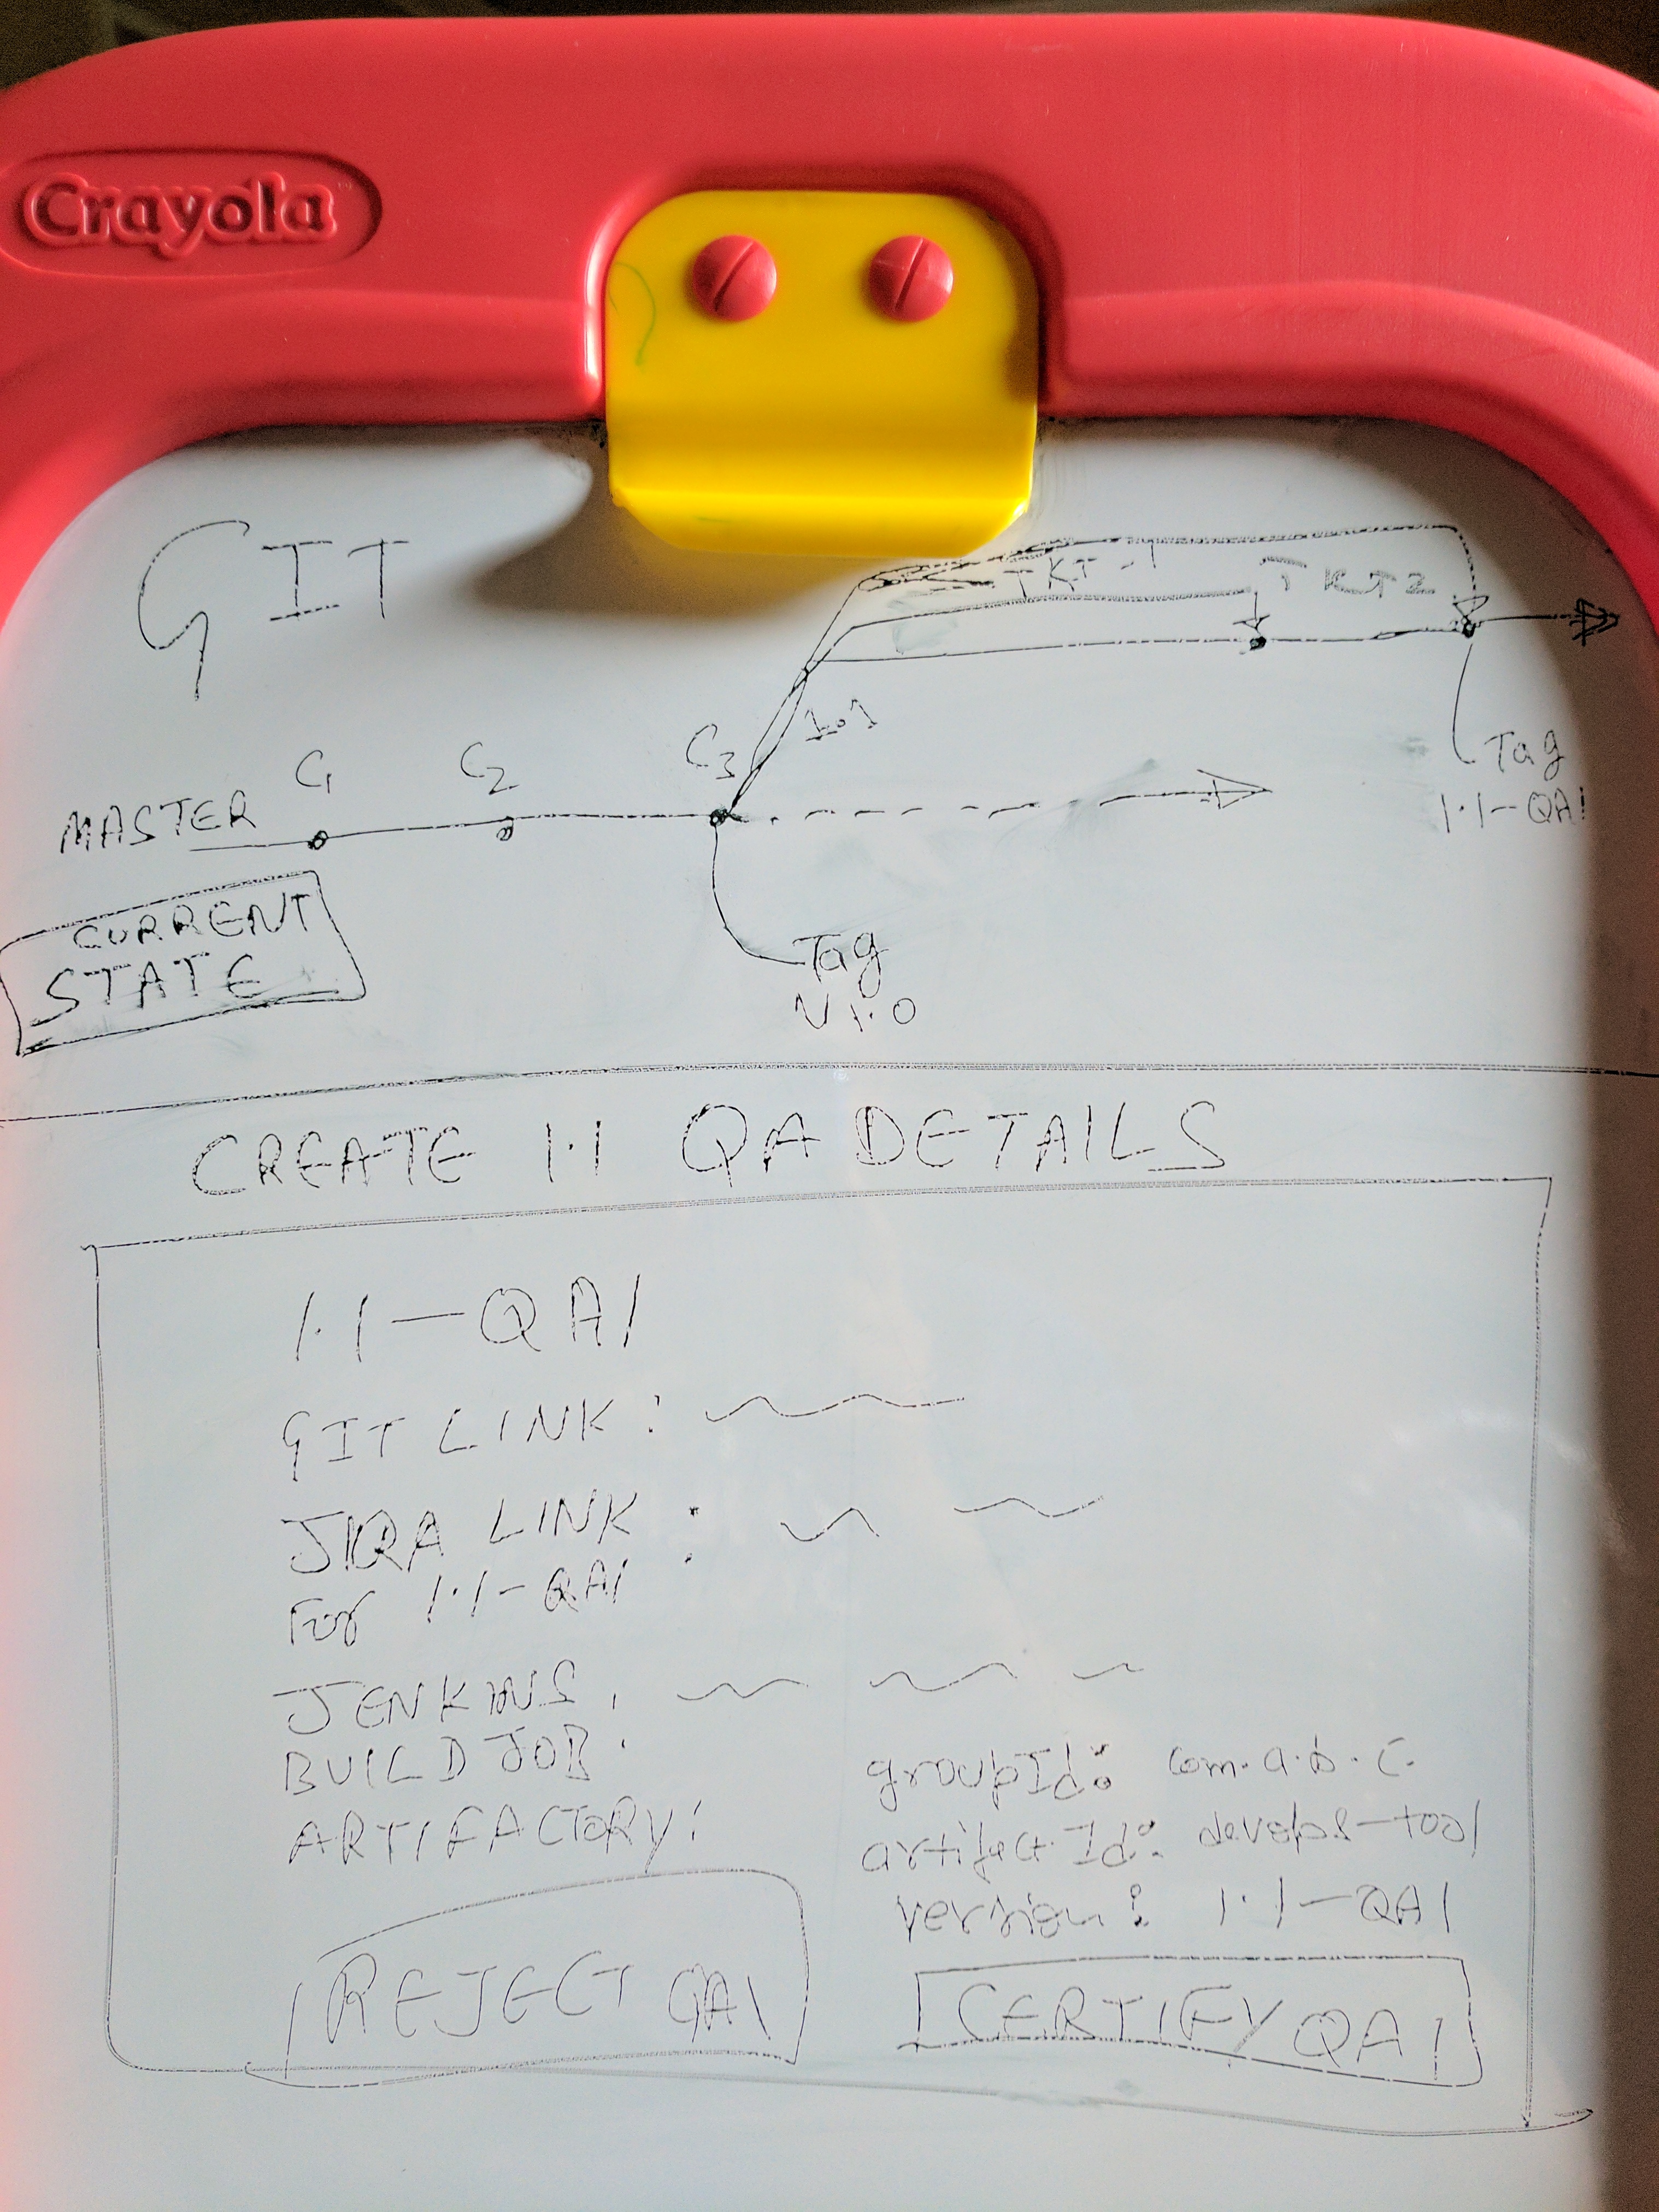 Crayola
GIT
TKT-1
TKT2
1.1
C1 C2 C3
MASTER
Tag
1.1-QA1
CURRENT
STATE
Tag
V1.0
CREATE 1.1 QA DETAILS
1.1-QA1
GIT LINK:
JIRA LINK:
For 1.1-QA1
JENKINS
BUILD JOB:
ARTIFACTORY:
groupId: com.a.b.c.
artifactId: devops-tool
version: 1.1-QA1
REJECT QA1
CERTIFY QA1